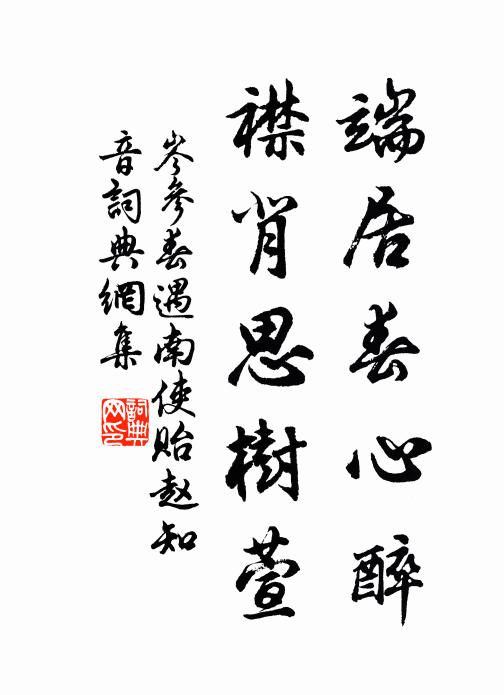 端居春心醉
襟背思樹萱
岑參春遇南使貽赵知
音詞典網集
詞典
网印